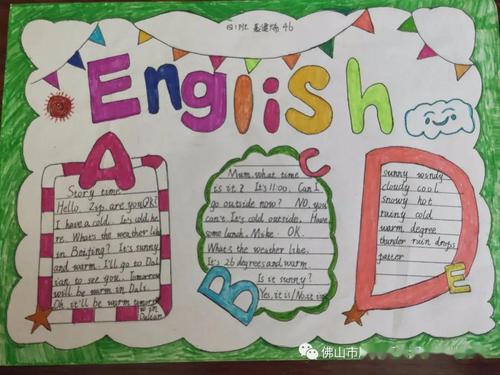 四1班 46
English
A
Story time
Hello. Zip. are you OK?
I have a cold. It's cold he
re. What's the weather like
in Beijing? It's sunny
and warm. I'll go to Dal
ian to see you. Tomorrow
will be warm in Dali
Oh it'll be warm tomorrow
in Dalian
C
Mum, what time
is it? It's 11:00. Can I
go outside now? NO, you
can't. It's cold outside. Have
some lunch. Mike. OK.
What's the weather like.
It's 26 degrees and warm.
Is it sunny?
Yes, it is/No, it
B
D
sunny windy
cloudy cool
snowy hot
rainy cold
warm degree
thunder rain drops
patter
E
佛山市